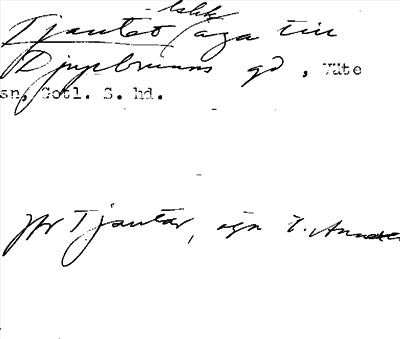 Tjautet äga till
Djupbrunns gd, Väte
sn, Gotl. S. hd.
Jfr Tjautar, ägn i